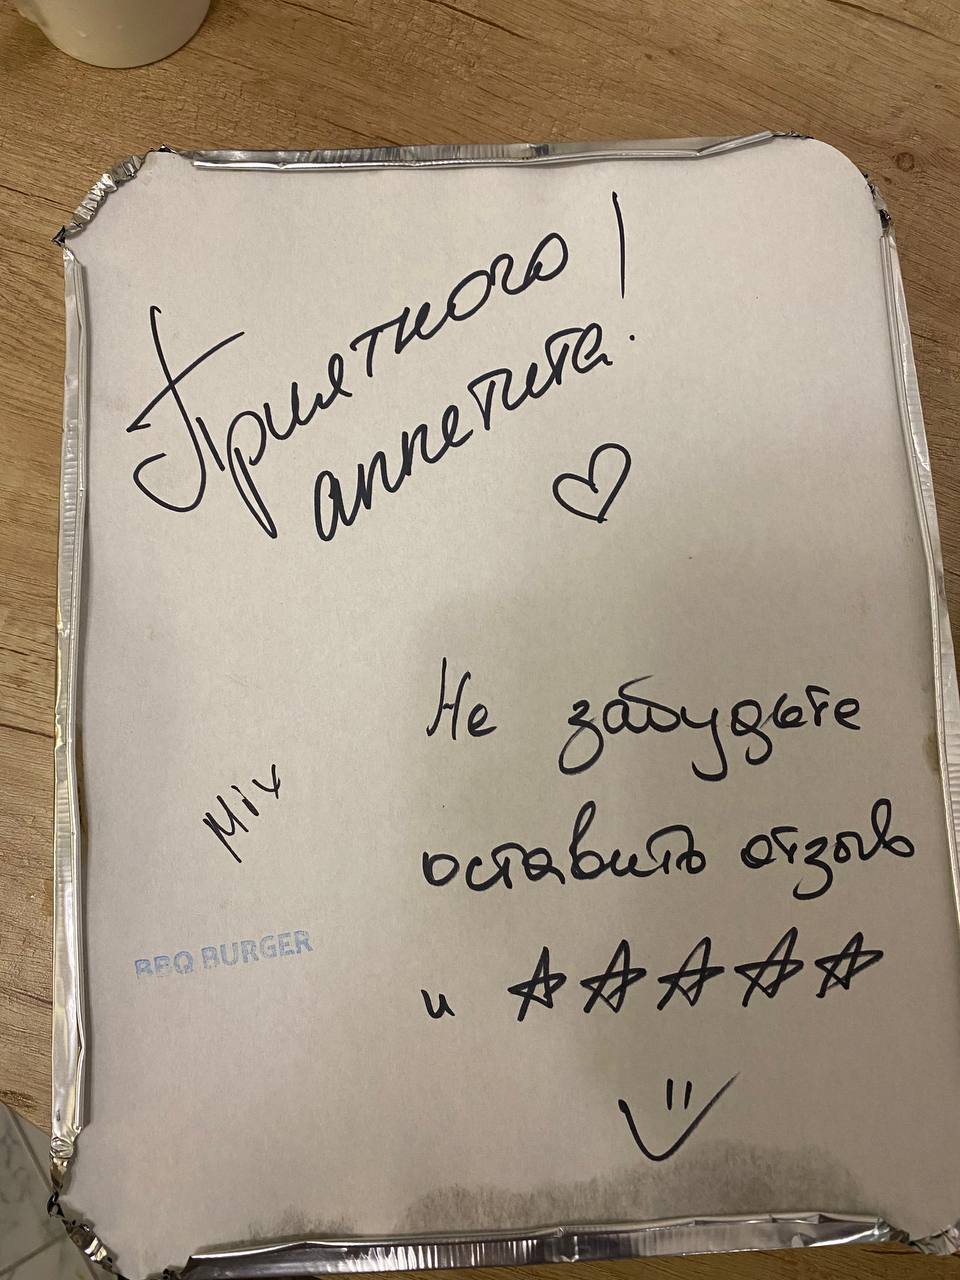 Приятного!
аппетита.
Не забудьте
оставить отзыв
и
Mix
BBQ BURGER